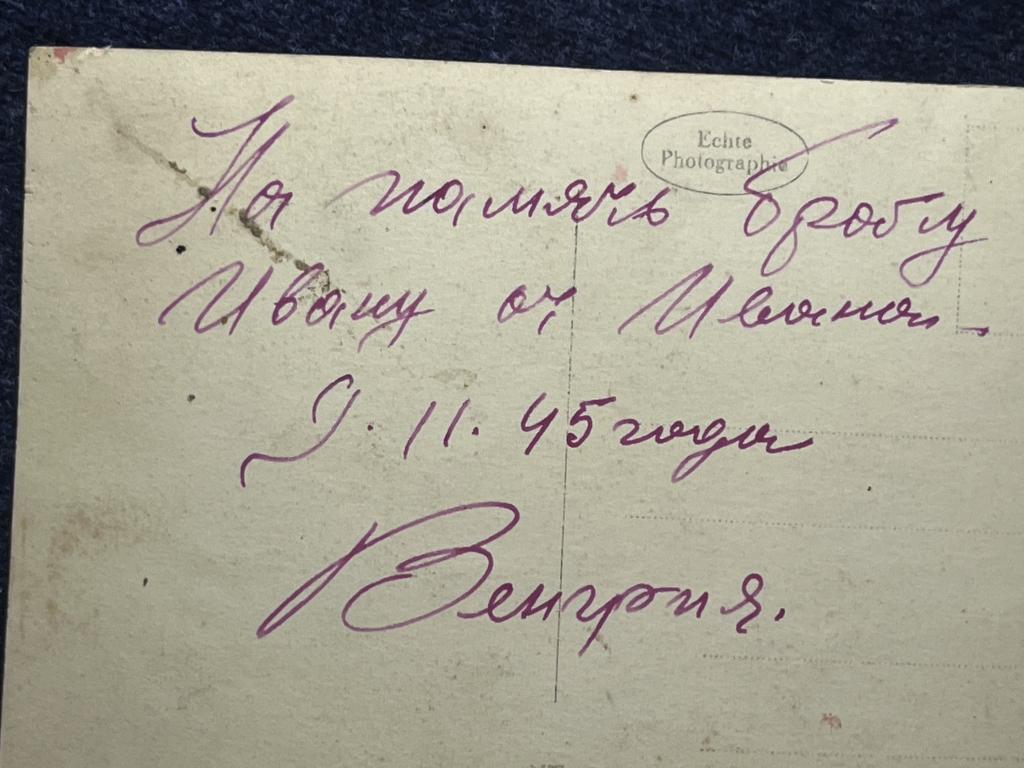 Echte
Photographie
На память брату
Ивану от Ивана
9.11.45 года
Венгрия.